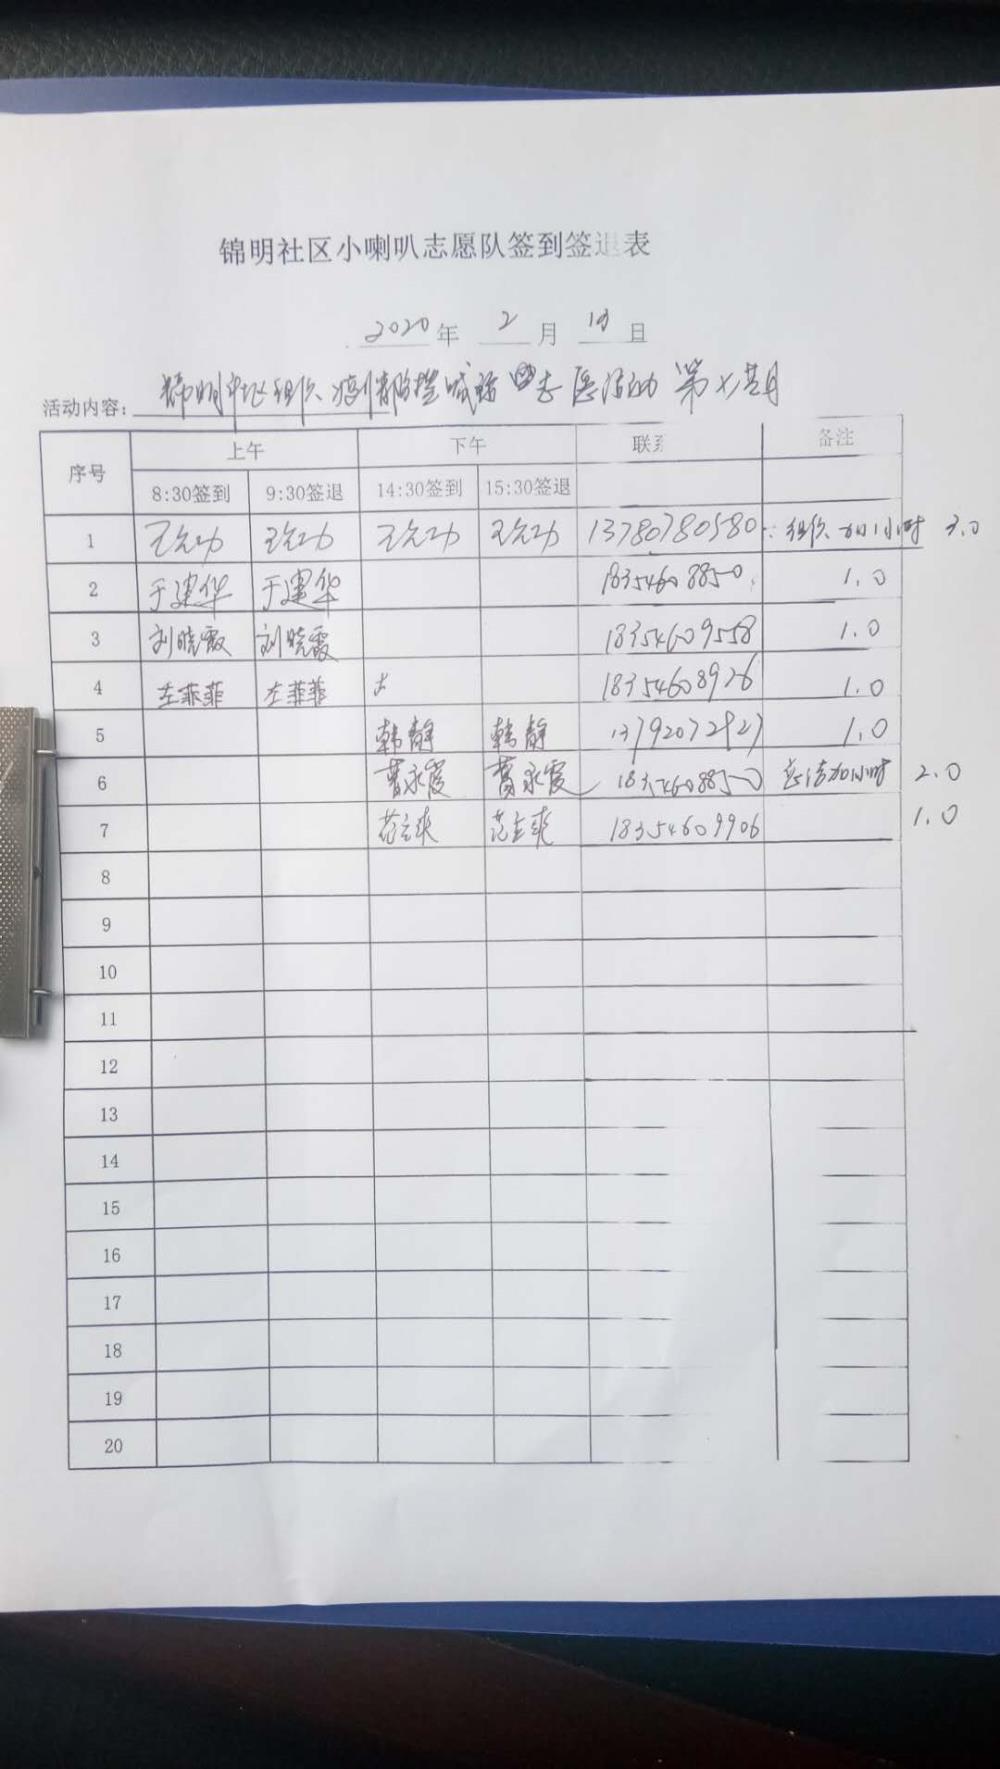 锦明社区小喇叭志愿队签到签退表
2020年 2月 19日
活动内容: 锦明社区组织疫情防控喊话 志愿活动 第七期
序号 上午 下午 联系 备注
8:30签到 9:30签退 14:30签到 15:30签退
1 13780780580 组织加1小时 3.0
2 于建华 于建华 18354608850 1.0
3 刘晓霞 刘晓霞 18354609558 1.0
4 左菲菲 左菲菲 18354608926 1.0
5 韩静 韩静 13792072927 1.0
6 曹永霞 曹永霞 18354608850 加1小时 2.0
7 范立爽 范立爽 18354609906 1.0
8
9
10
11
12
13
14
15
16
17
18
19
20